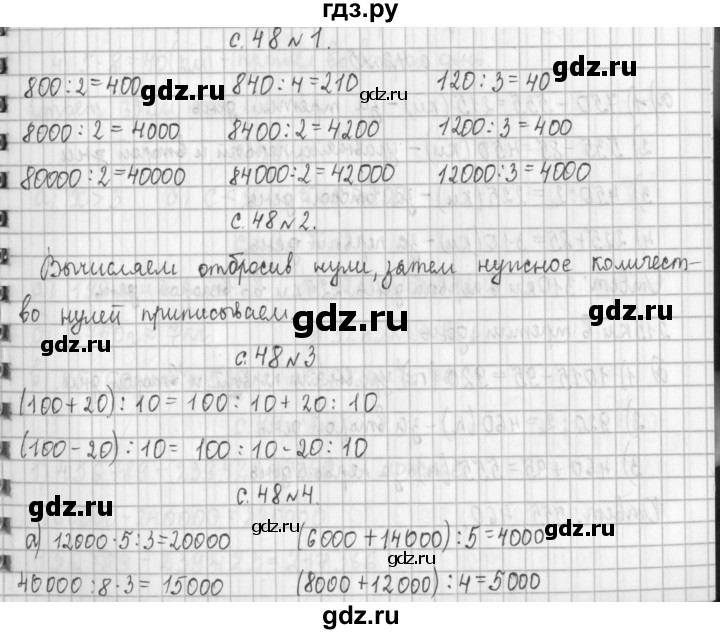 гдз.ру
с. 48 № 1.
800 : 2 = 400 840 : 4 = 210 120 : 3 = 40
8000 : 2 = 4000 8400 : 2 = 4200 1200 : 3 = 400
80000 : 2 = 40000 84000 : 2 = 42000 12000 : 3 = 4000
с. 48 № 2.
Вычисляем отбросив нули, затем нужное количест-
во нулей приписываем
с. 48 № 3
(100 + 20) : 10 = 100 : 10 + 20 : 10
(100 - 20) : 10 = 100 : 10 - 20 : 10
с. 48 № 4.
а) 12000 · 5 : 3 = 20000 (6000 + 14000) : 5 = 4000
40000 : 8 · 3 = 15000 (8000 + 12000) : 4 = 5000
gdz.ru
gdz.ru
gdz.ru
gdz.ru
gdz.ru
gdz.ru
gdz.ru
gdz.ru
gdz.ru
gdz.ru
gdz.ru